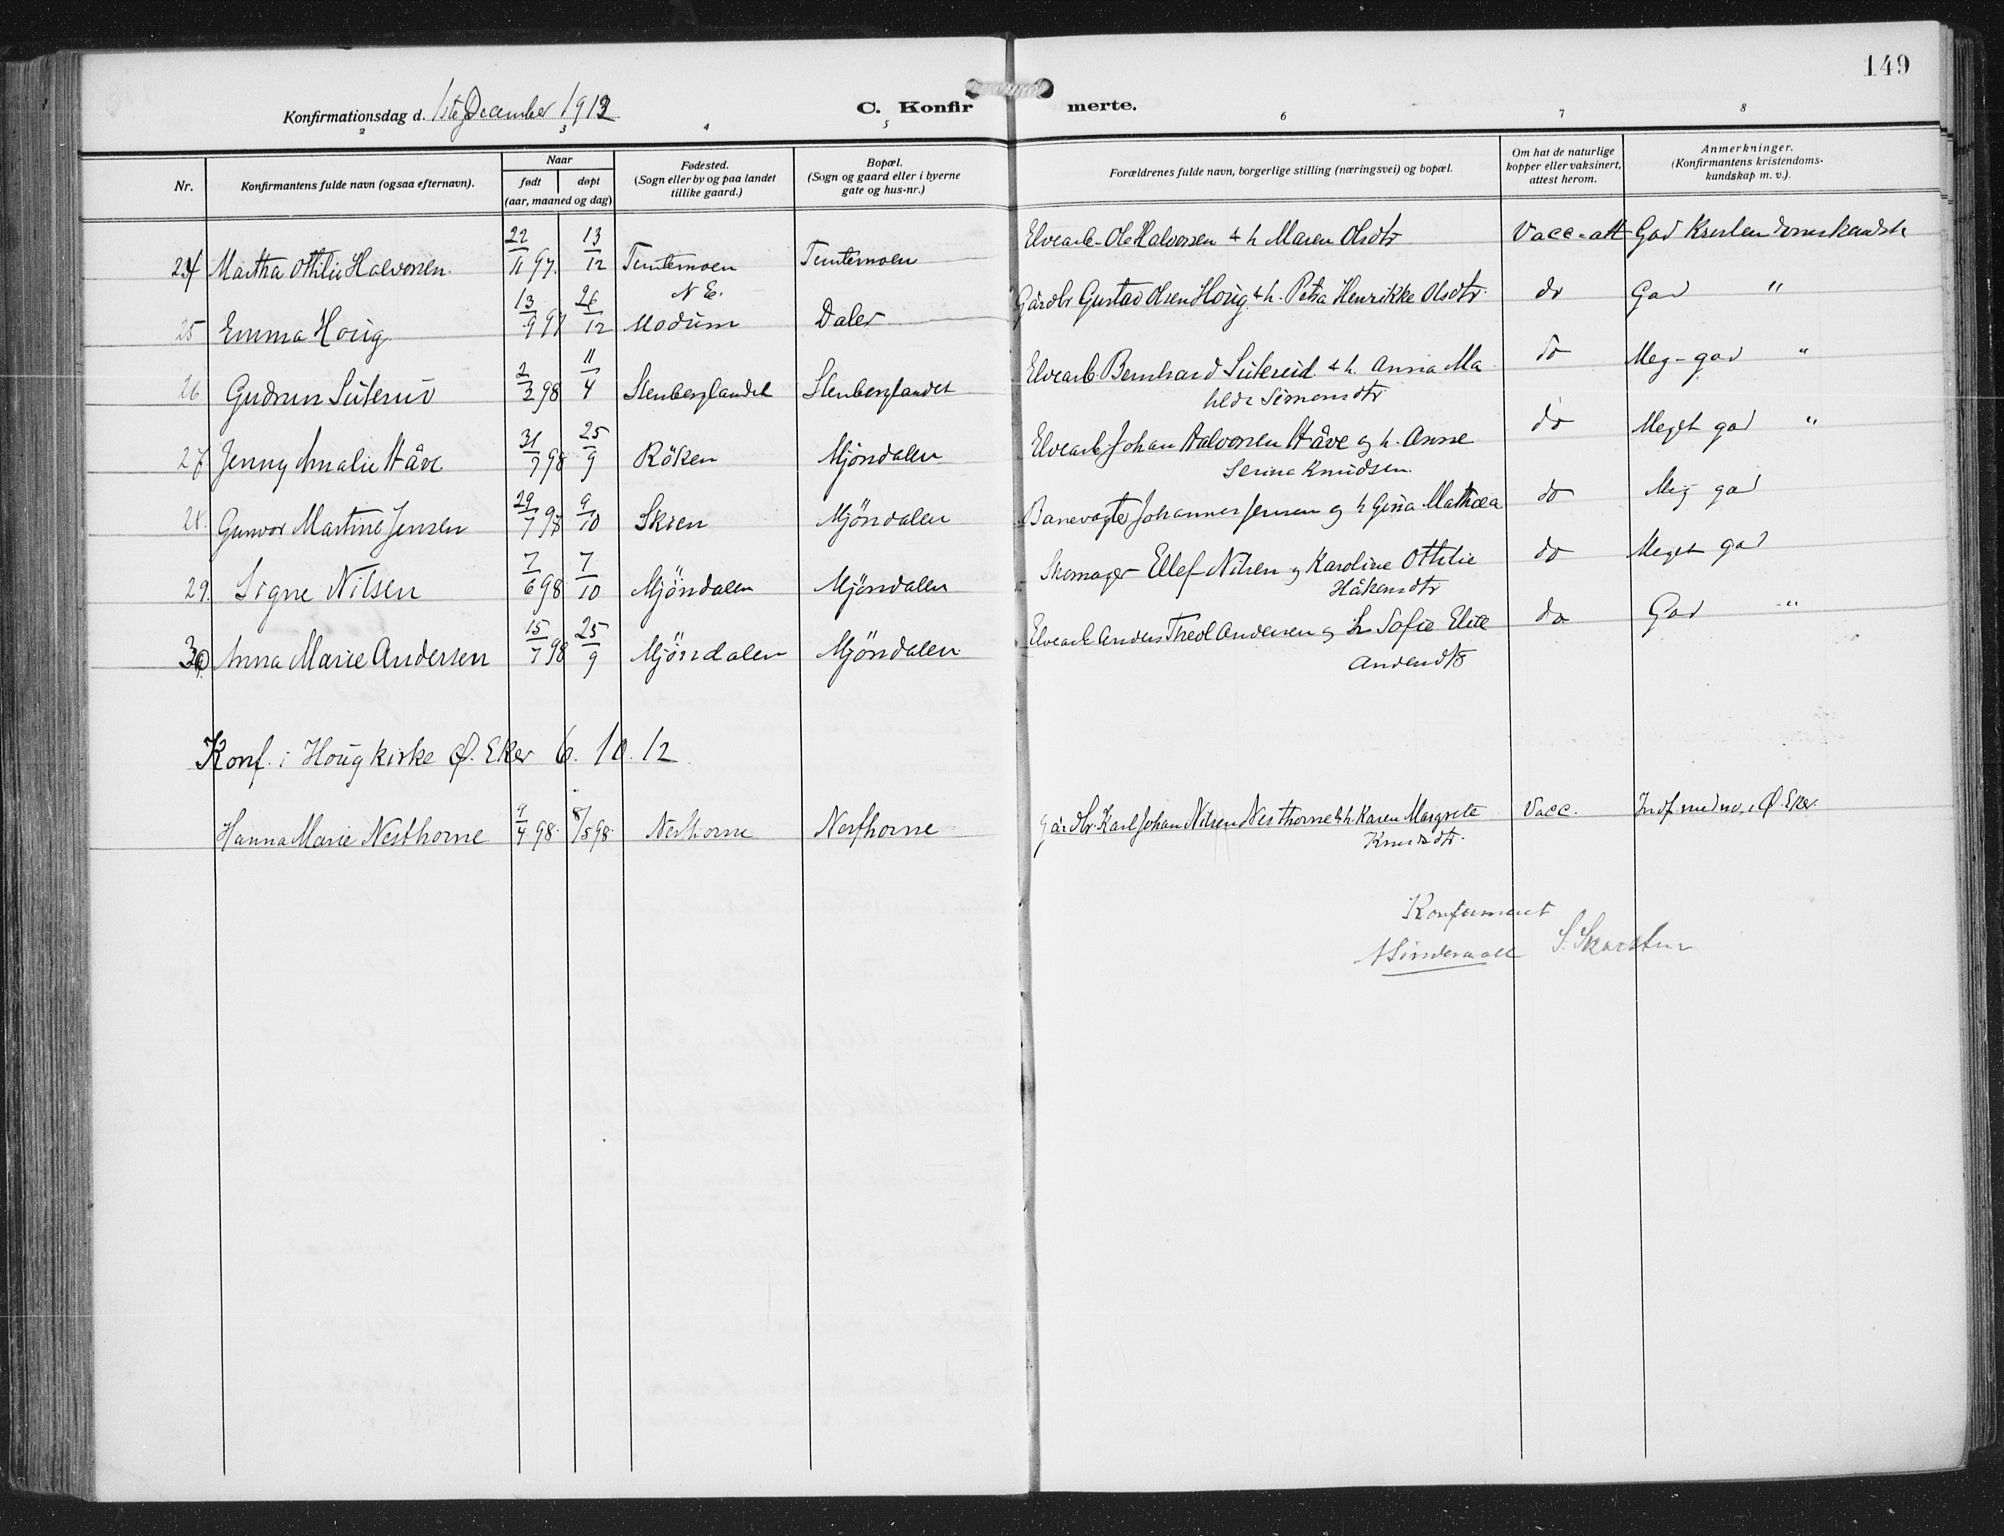 149
Konfirmationsdag d. 1ste December 1912
C. Konfirmerte.
2 3 4 5 6 7 8
Nr.
Konfirmantens fulde navn (ogsaa efternavn).
Naar
født døpt
(aar, maaned og dag)
Fødested.
(Sogn eller by og paa landet
tillike gaard.)
Bopæl.
(Sogn og gaard eller i byerne
gate og hus-nr.)
Forældrenes fulde navn, borgerlige stilling (næringsvei) og bopæl.
Om hat de naturlige
kopper eller vaksinert,
attest herom.
Anmerkninger.
(Konfirmantens kristendoms-
kundskap m. v.).
24 Martha Othilie Halvorsen 22/11 97. 13/12 Temtemoen Temtemoen Elvearb. Ole Halvorsen & h. Maren Olsdtr Vacc-att God Kristendomskundsk
25 Emma Houg 13/9 97 26/12 N E. Modum Daler Gårdbr Gustav Olsen Houg & h. Petra Henrikke Olsdtr. do God "
26 Gudrun 2/3 98 11/4 Stenberglandet Stenberglandet Elvearb Bernhard & h. Anna Ma
thilde Simensdtr do Meg-god "
27 Jenny Amalie Håve 31/7 98 25/9 Röken Mjöndalen Elvearb Johan Halvorsen Håve og h. Anne
Serine Knudsen. do Meget god "
28. Gunvor Martine Jensen 29/7 98 9/10 Skien Mjöndalen Banevogter Johannes Jensen og h Gina Mathea do Meg god
29. Signe Nilsen 7/6 98 7/10 Mjöndalen Mjöndalen Skomager Ellef Nilsen og Karoline Othilie
Håkensdtr do Meget god
30. Anna Marie Andersen 15/7 98 25/9 Mjöndalen Mjöndalen Elvearb Anders Theol Andersen og h Sofie Elise
Andersdtr do God "
Konf. i Houg kirke Ø. Eker 6. 10. 12
Hanna Marie Nesthorne 9/4 98. 8/5 98. Nesthorne Nesthorne Gårdbr. Karl Johan Nilsen Nesthorne & h Karen Margrete
Knudsdtr. Vacc. Indf. i Ø. Eker.
Konfermert